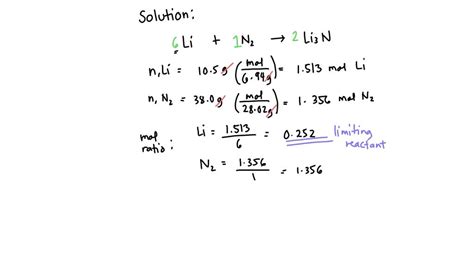 Solution:
6Li + 1N₂ → 2 Li₃N
n, Li = 10.5 g (mol / 6.94 g) = 1.513 mol Li
n, N₂ = 38.0 g (mol / 28.02 g) = 1.356 mol N₂
mol ratio: Li = 1.513 / 6 = 0.252 limiting reactant
N₂ = 1.356 / 1 = 1.356